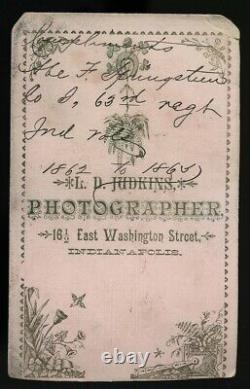 Compliments
Abe F Springsteen
Co I, 63rd regt
Ind vols
1862 to 1865
L. D. JUDKINS,
PHOTOGRAPHER,
16½ East Washington Street,
INDIANAPOLIS.